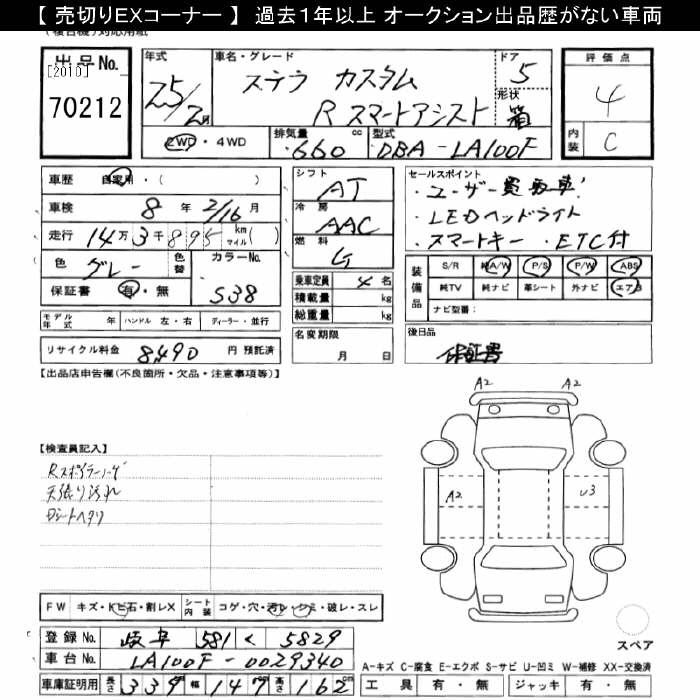 【 売切りEXコーナー 】 過去1年以上 オークション出品歴がない車両
出品No.
[2010]
70212
年式
25/2月
車名・グレード
ステラ カスタム
R スマートアシスト
ドア
5
形状
箱
評価点
4
内装
C
2WD・4WD
排気量
660 cc
型式
DBA-LA100F
車歴 自家用・( )
車検 8 年 2/16 月
走行 14万3千895 km マイル( )
色 グレー 色替
カラーNo. S38
保証書 有・無
シフト
AT
冷房
AAC
燃料
G
乗車定員 4 名
積載量 kg
総重量 kg
名変期限
月 日
セールスポイント
・ユーザー買取車!
・LEDヘッドライト
・スマートキー ・ETC付
装備品
S/R 純A/W P/S P/W ABS
純TV 純ナビ 革シート 外ナビ エアB
ナビ型番:
モデル年式 年 ハンドル 左・右 ディーラー・並行
リサイクル料金 8490 円 預託済
後日品
保証書
【出品店申告欄(不良箇所・欠品・注意事項等)】
【検査員記入】
天張り汚れ
Dシートヘタリ
A2 A2
A2
U3
FW キズ・トビ石・割レX シート内装 コゲ・穴・汚レ・シミ・破レ・スレ
登録No. 岐阜 581 く 5829
車台No. LA100F-0029340
車庫証明用 長さ 339 幅 147 高さ 162 cm
スペア
A-キズ C-腐食 E-エクボ S-サビ U-凹ミ W-補修 XX-交換済
工具 有・無 ジャッキ 有・無